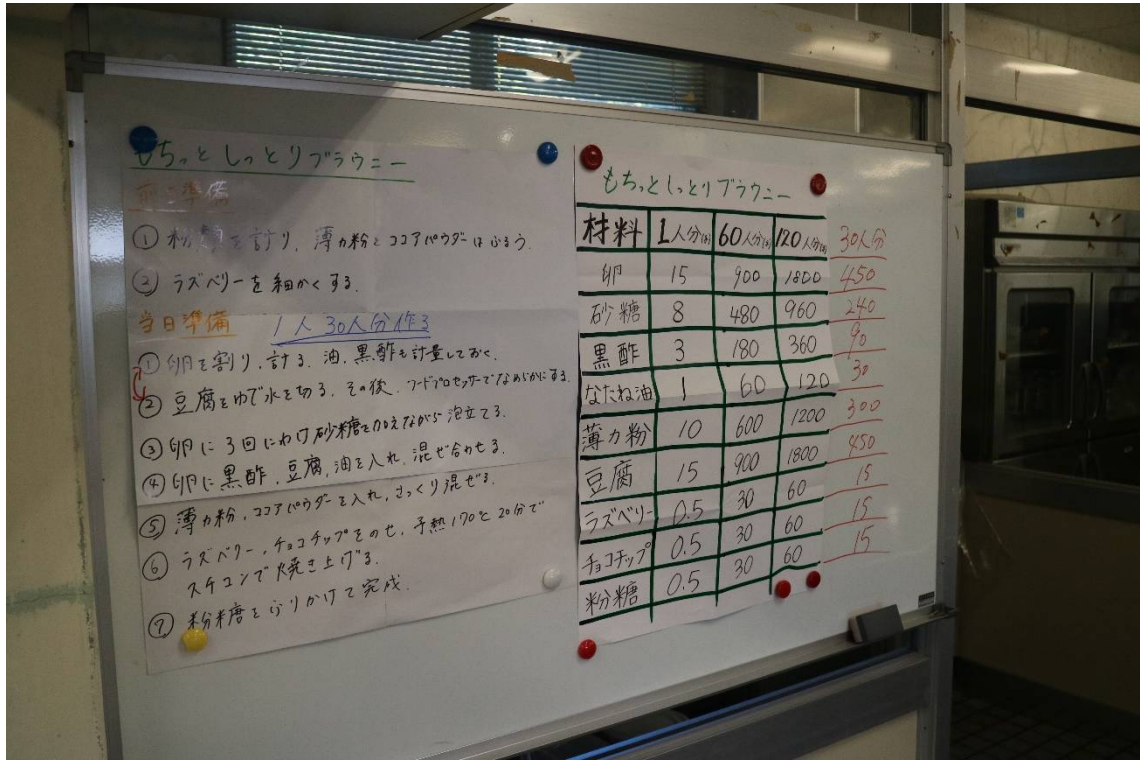 もちっとしっとりブラウニー
前日準備
① 粉類を計り、薄力粉とココアパウダーはふるう.
② ラズベリーを細かくする.
当日準備 1人30人分作る
① 卵を割り、計る. 油、黒酢も計量しておく.
② 豆腐をゆで水を切る. その後、フードプロセッサーでなめらかにする.
③ 卵に3回にわけ砂糖を加えながら泡立てる.
④ 卵に黒酢、豆腐、油を入れ、混ぜ合わせる.
⑤ 薄力粉、ココアパウダーを入れ、さっくり混ぜる.
⑥ ラズベリー、チョコチップをのせ、予熱170℃ 20分で
スチコンで焼き上げる.
⑦ 粉糖をふりかけて完成.
もちっとしっとりブラウニー
材料 1人分(g) 60人分(g) 120人分(g) 30人分
卵 15 900 1800 450
砂糖 8 480 960 240
黒酢 3 180 360 90
なたね油 1 60 120 30
薄力粉 10 600 1200 300
豆腐 15 900 1800 450
ラズベリー 0.5 30 60 15
チョコチップ 0.5 30 60 15
粉糖 0.5 30 60 15